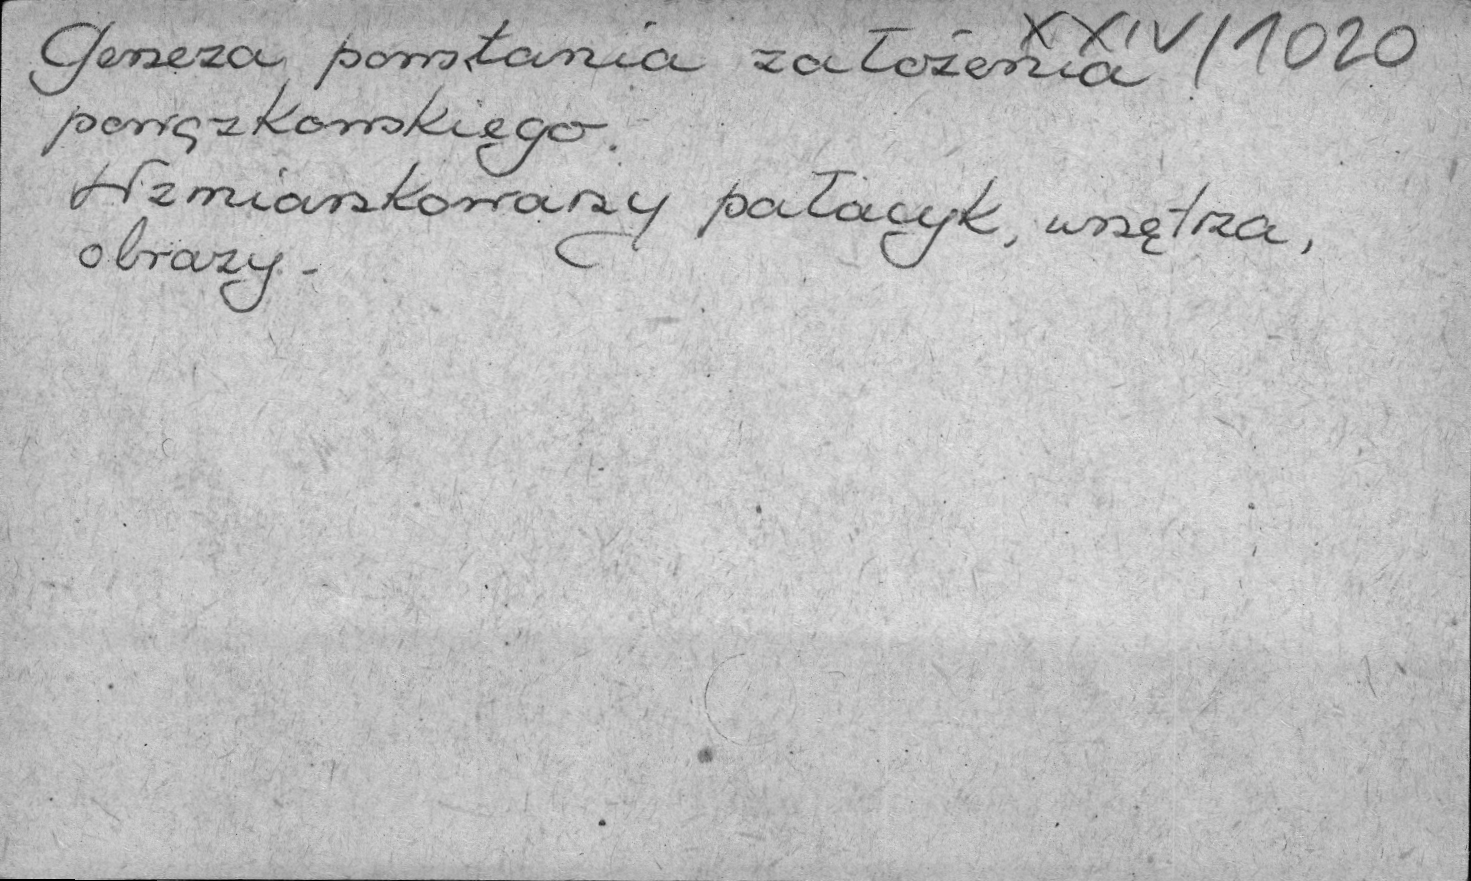 XXIV/1020
Geneza powstania założenia
powązkowskiego.
Wzmiankowany pałacyk, wnętrza,
obrazy.